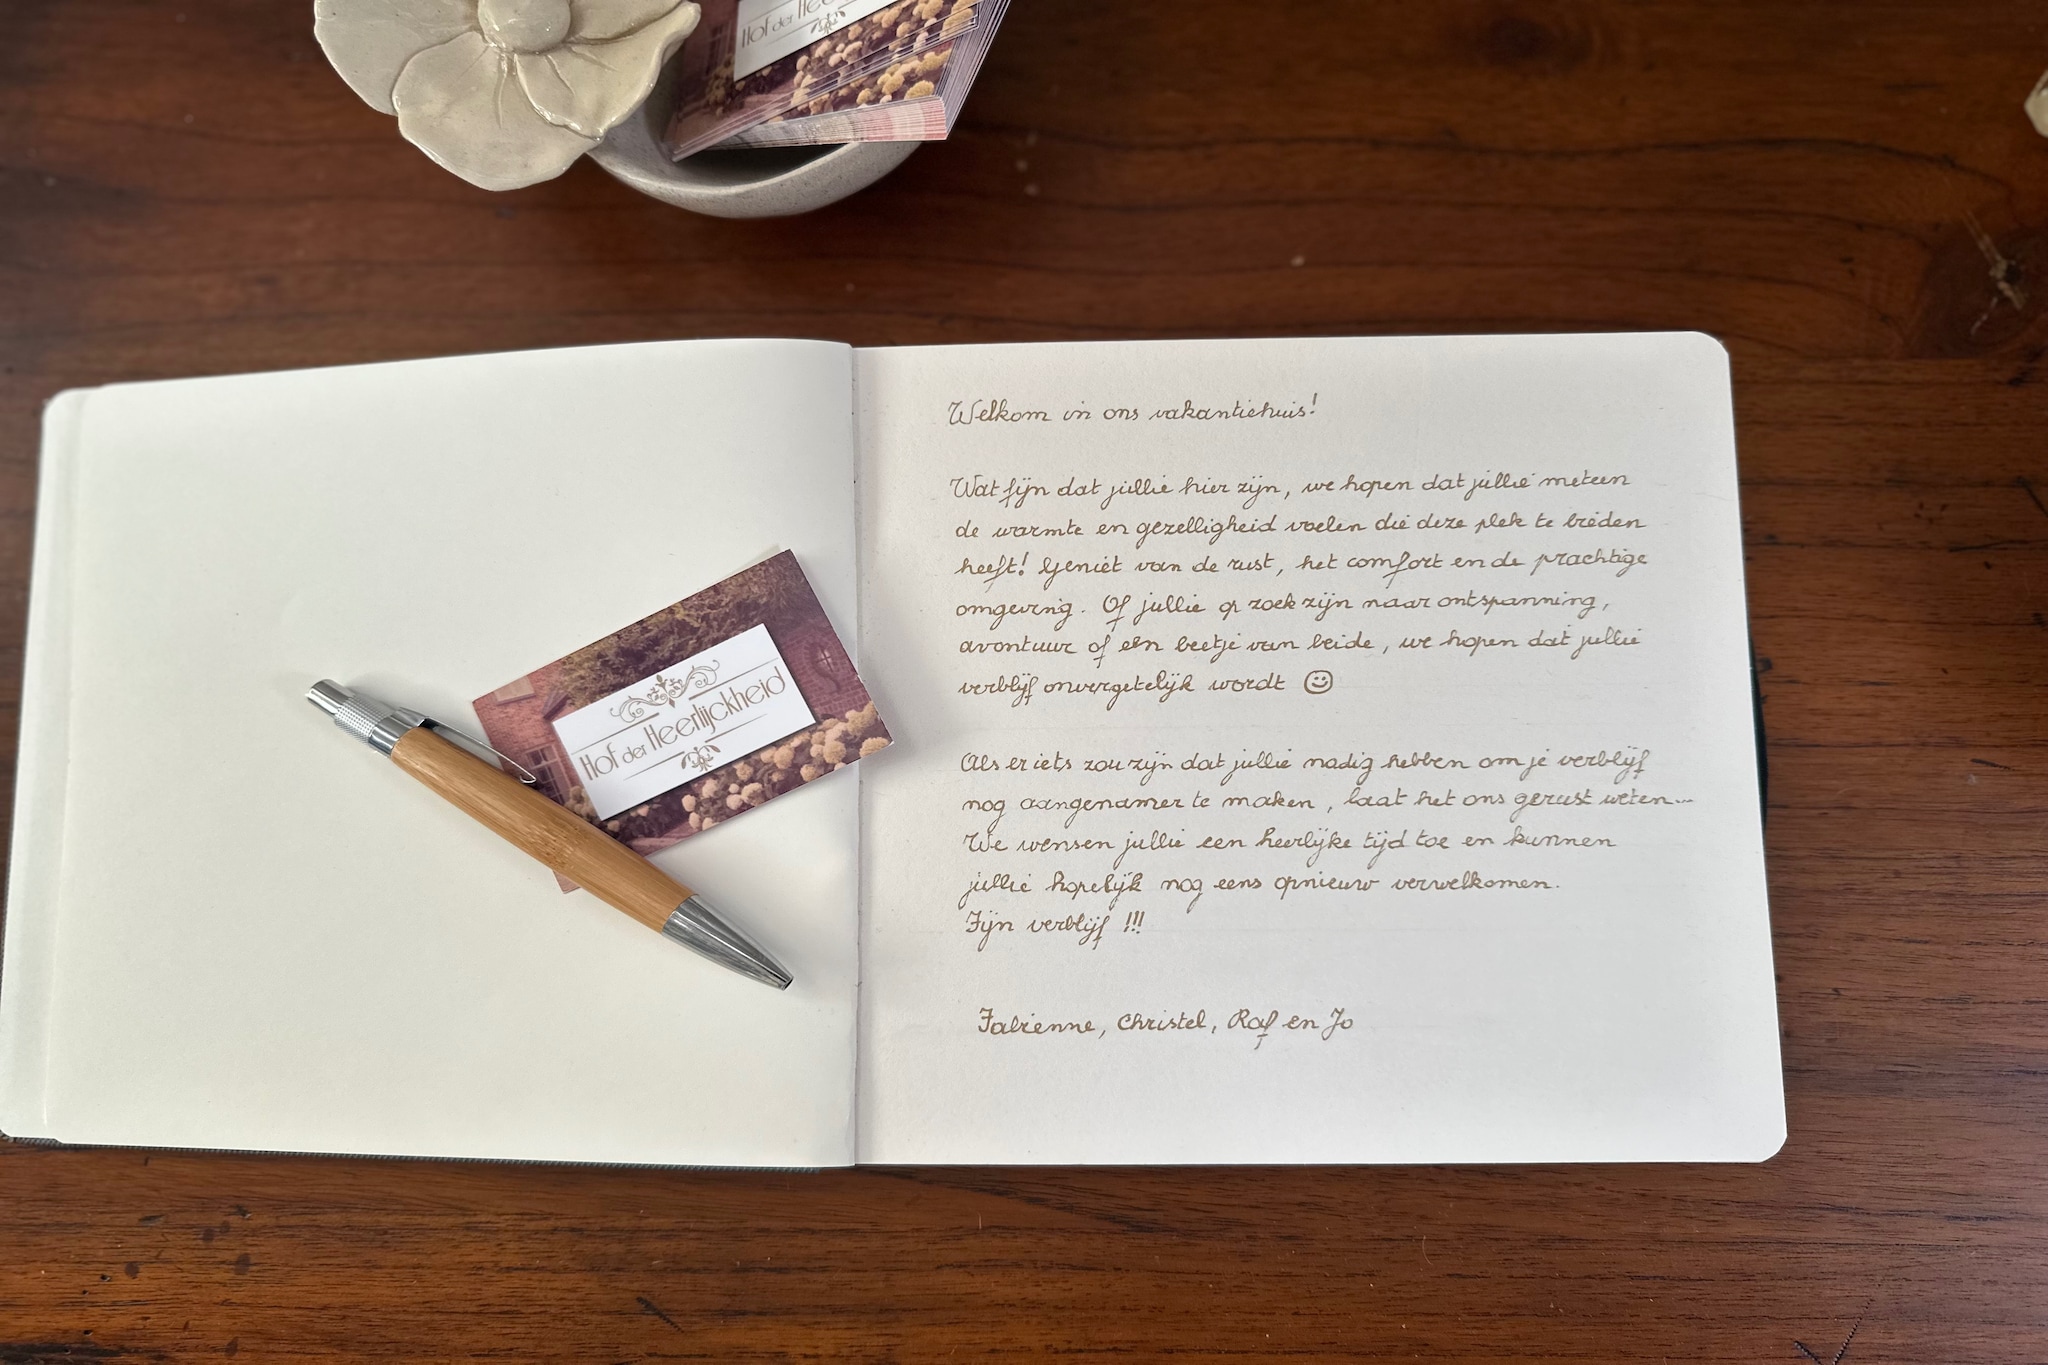 Hof der Hee
Hof der Heerlijckheid
Welkom in ons vakantiehuis!
Wat fijn dat jullie hier zijn, we hopen dat jullie meteen
de warmte en gezelligheid voelen die deze plek te bieden
heeft! Geniet van de rust, het comfort en de prachtige
omgeving. Of jullie op zoek zijn naar ontspanning,
avontuur of een beetje van beide, we hopen dat jullie
verblijf onvergetelijk wordt ☺
Als er iets zou zijn dat jullie nodig hebben om je verblijf
nog aangenamer te maken, laat het ons gerust weten...
We wensen jullie een heerlijke tijd toe en kunnen
jullie hopelijk nog eens opnieuw verwelkomen.
Fijn verblijf !!!
Fabienne, Christel, Raf en Jo